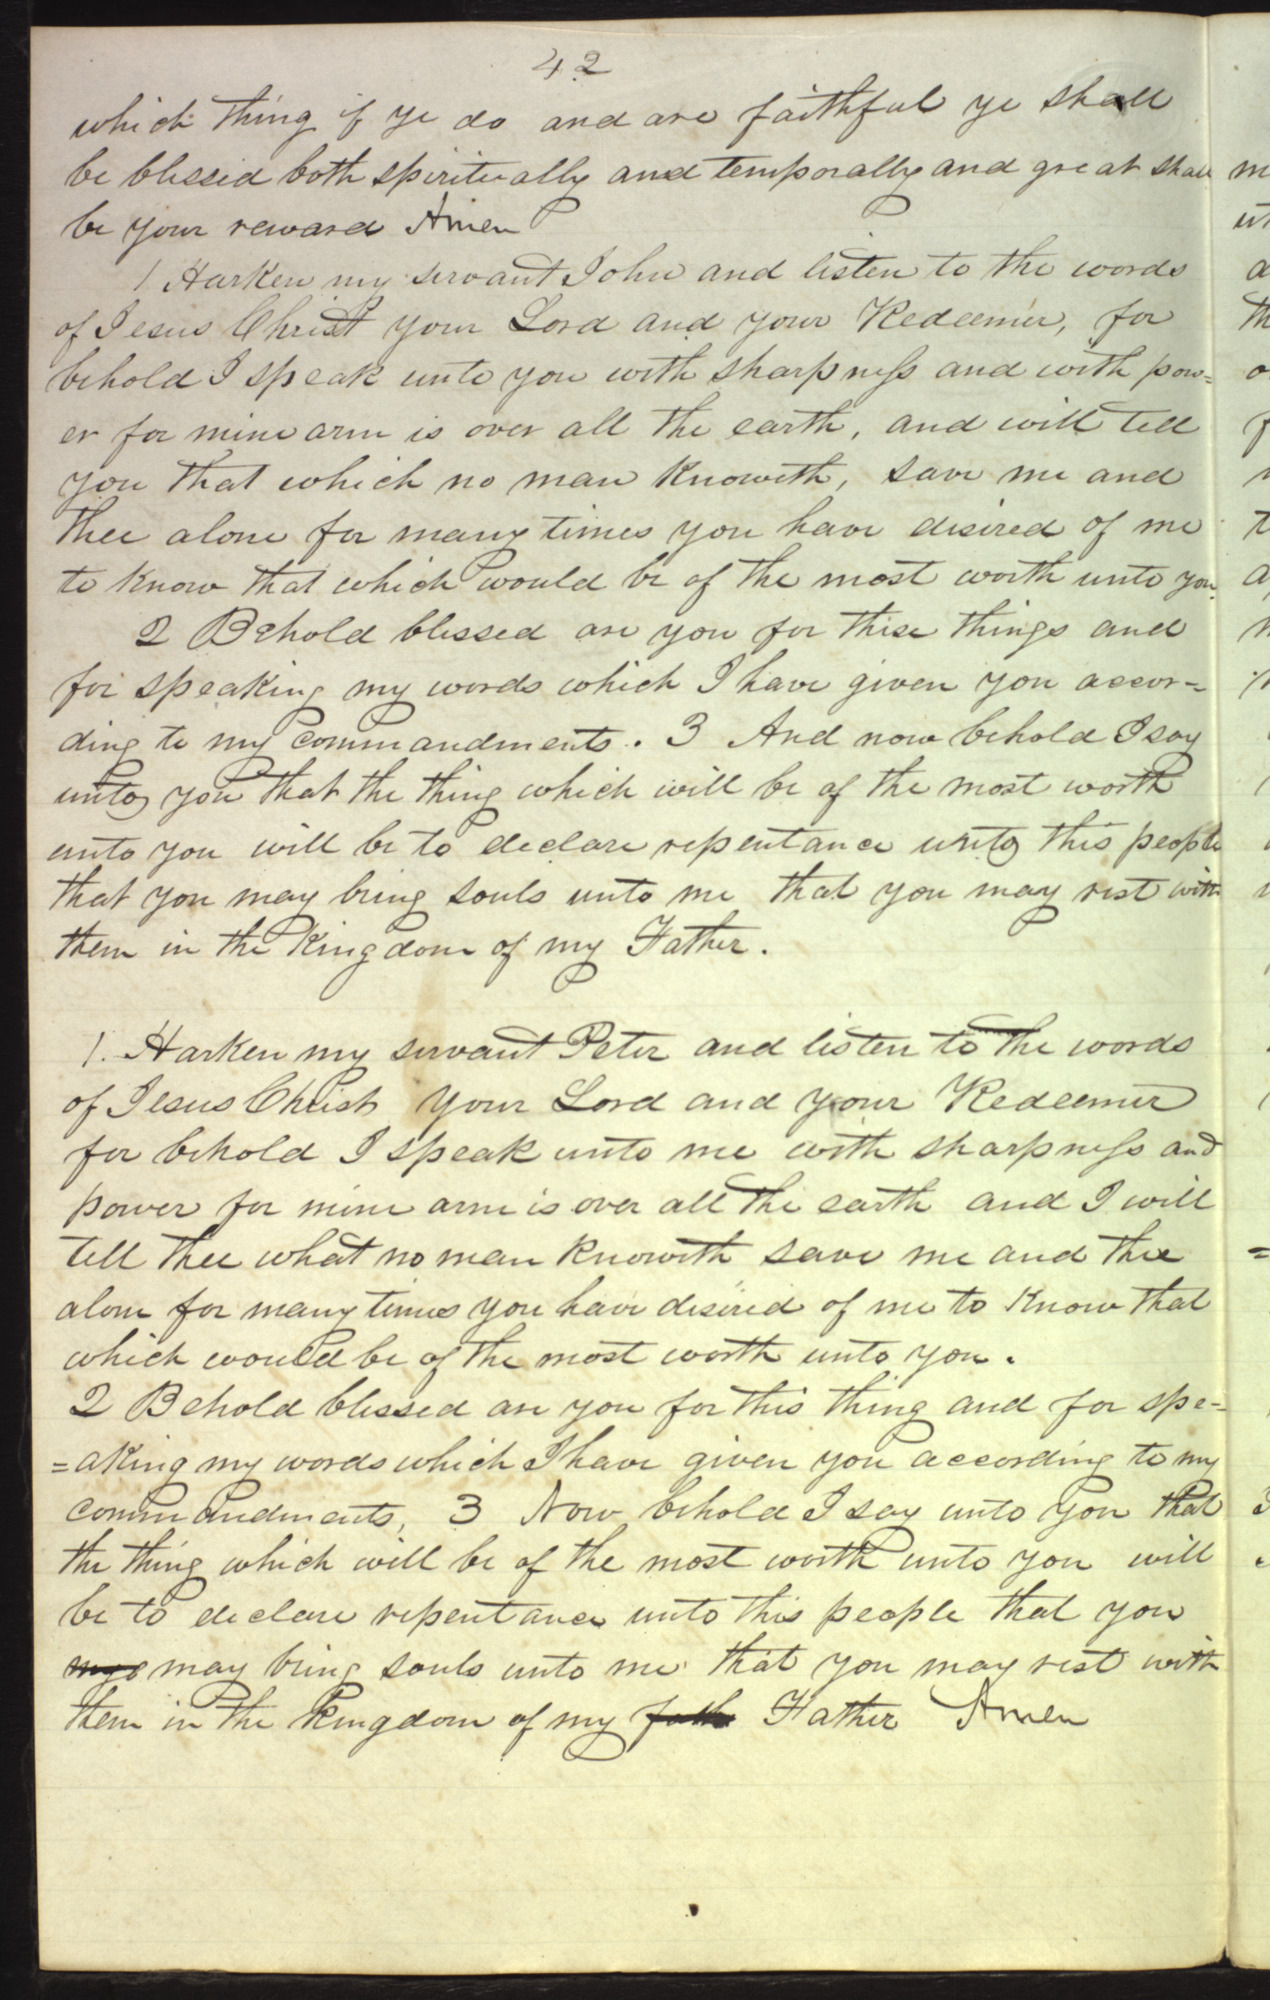 42
which thing if ye do and are faithful ye shall
be blessed both spiritually and temporally and great shall
be your reward Amen
1 Harken my servant John and listen to the words
of Jesus Christ your Lord and your Redeemer, for
behold I speak unto you with sharpness and with pow=
er for mine arm is over all the earth, and will tell
you that which no man knoweth, save me and
thee alone for many times you have desired of me
to know that which would be of the most worth unto you.
2 Behold blessed are you for these things and
for speaking my words which I have given you accor=
ding to my commandments. 3 And now behold I say
unto you that the thing which will be of the most worth
unto you will be to declare repentance unto this people
that you may bring souls unto me that you may rest with
them in the kingdom of my Father.
1. Harken my servant Peter and listen to the words
of Jesus Christ your Lord and your Redeemer
for behold I speak unto me with sharpness and
power for mine arm is over all the earth and I will
tell thee what no man knoweth save me and thee
alone for many times you have desired of me to know that
which would be of the most worth unto you.
2 Behold blessed are you for this thing and for spe=
=aking my words which I have given you according to my
commandments, 3 Now behold I say unto you that
the thing which will be of the most worth unto you will
be to declare repentance unto this people that you
may bring souls unto me that you may rest with
them in the kingdom of my fath Father Amen